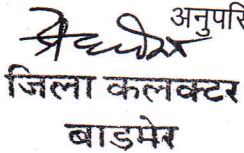 अनुपरि
जिला कलक्टर
बाडमेर